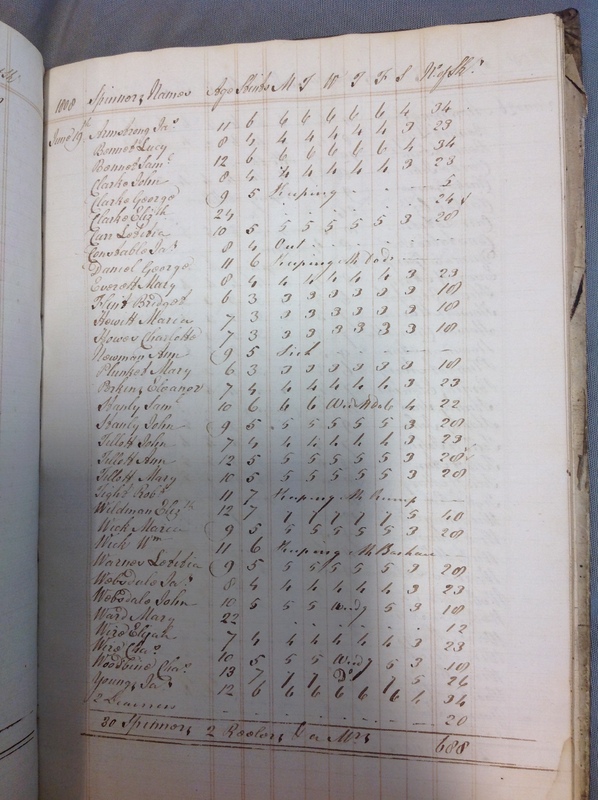 1808 Spinners Names Age Stints M T W T F S No of Sk.s
June 19th Armstrong Ja.s 11 6 6 6 6 6 6 4 34
Bennet Lucy 8 4 4 4 4 4 4 3 23
Bennet Sam.l 12 6 6 6 6 6 6 4 34
Clarke John 8 4 4 4 4 4 4 3 23
Clarke George 9 5 Keeping 5
Clarke Eliz.th 24 24
Carr Letitia 10 5 5 5 5 5 5 3 28
Constable Ja.s 8 4 Out
Daniel George 11 6 Keeping Mr
Everett Mary 8 4 4 4 4 4 4 3 23
Flint Bridget 6 3 3 3 3 3 3 3 18
Howitt Maria 7 3 3 3 3 3 3 3 18
Howes Charlotte 7 3 3 3 3 3 3 3 18
Newman Ann 9 5 Sick
Plunket Mary 6 3 3 3 3 3 3 3 18
Perkins Eleanor 7 4 4 4 4 4 4 3 23
Stanly Sam.l 10 6 6 6 6 4 22
Stanly John 9 5 5 5 5 5 5 3 28
Tillott John 7 4 4 4 4 4 4 3 23
Tillott Ann 12 5 5 5 5 5 5 3 28
Tillott Mary 10 5 5 5 5 5 5 3 28
Tight Rob.t 11 7 Keeping Mr Kemp
Wildman Eliz.th 12 7 7 7 7 7 7 5 40
Wick Maria 9 5 5 5 5 5 5 3 28
Wick W.m 11 6 Keeping Mr
Warnes Letitia 9 5 5 5 5 5 5 3 28
Websdale Ja.s 8 4 4 4 4 4 4 3 23
Websdale John 10 5 5 5 5 3 18
Ward Mary 22 12
Wire Elijah 7 4 4 4 4 4 4 3 23
Wire Cha.s 10 5 5 5 5 3 18
Woodbine Cha.s 13 7 7 7 D.o 7 5 26
Young Ja.s 12 6 6 6 6 6 6 4 34
2 Learners 20
30 Spinners 2 Reelers & a Mrs 688